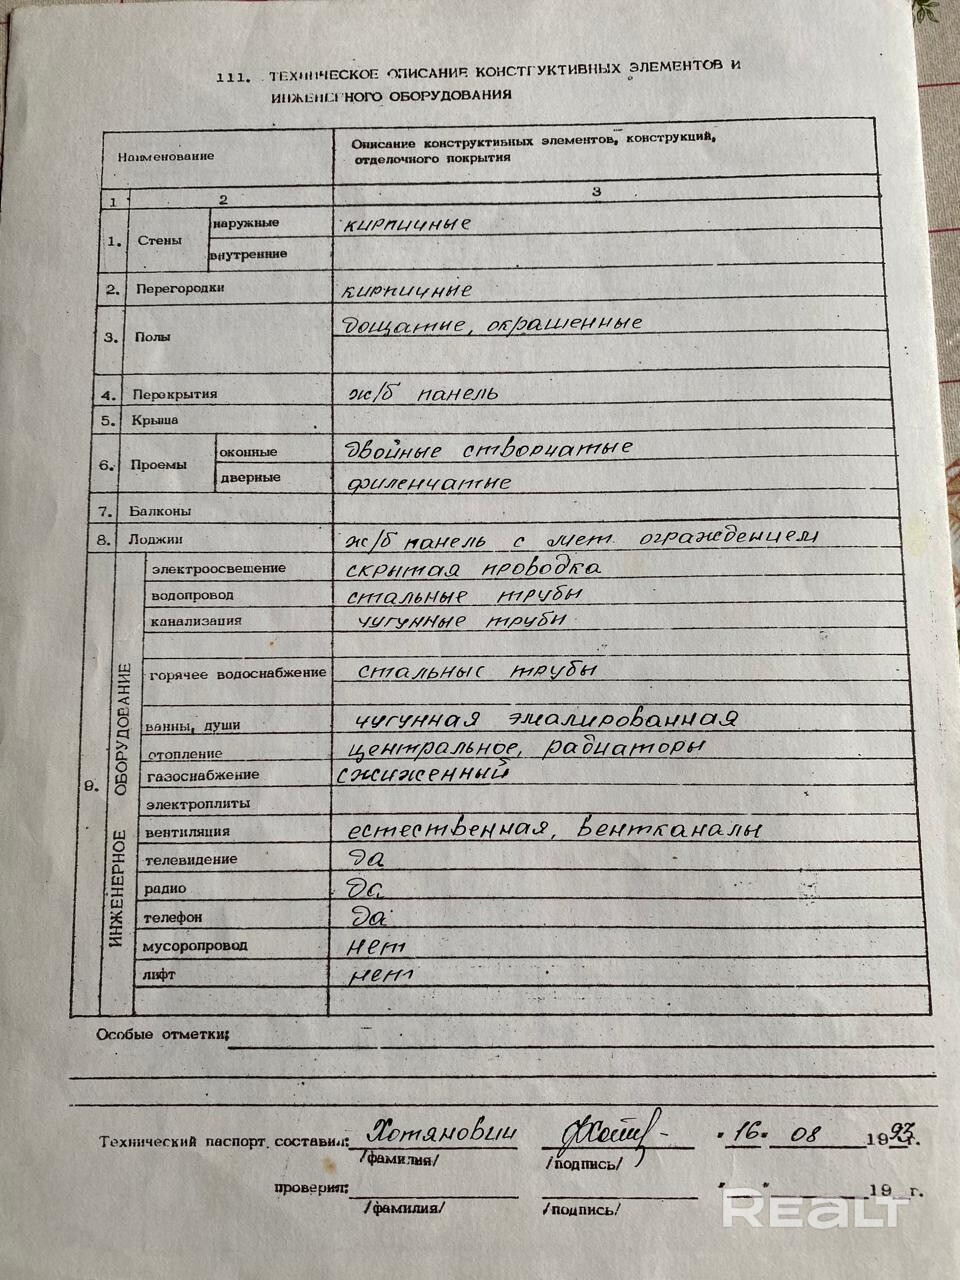 111. ТЕХНИЧЕСКОЕ ОПИСАНИЕ КОНСТРУКТИВНЫХ ЭЛЕМЕНТОВ И
ИНЖЕНЕРНОГО ОБОРУДОВАНИЯ
Наименование
Описание конструктивных элементов, конструкций,
отделочного покрытия
1 2 3
1. Стены наружные кирпичные
внутренние
2. Перегородки кирпичные
3. Полы дощатые, окрашенные
4. Перекрытия ж/б панель
5. Крыша
6. Проемы оконные двойные створчатые
дверные филенчатые
7. Балконы
8. Лоджии ж/б панель с мет. ограждением
9. ИНЖЕНЕРНОЕ ОБОРУДОВАНИЕ
электроосвещение скрытая проводка
водопровод стальные трубы
канализация чугунные трубы
горячее водоснабжение стальные трубы
ванны, души чугунная эмалированная
отопление центральное, радиаторы
газоснабжение сжиженный
электроплиты
вентиляция естественная, вентканалы
телевидение да
радио да
телефон да
мусоропровод нет
лифт нет
Особые отметки:
Технический паспорт составил: Хотянович "16" 08 1993г.
/фамилия/ /подпись/
проверил: " " 19 г.
/фамилия/ /подпись/
REALT